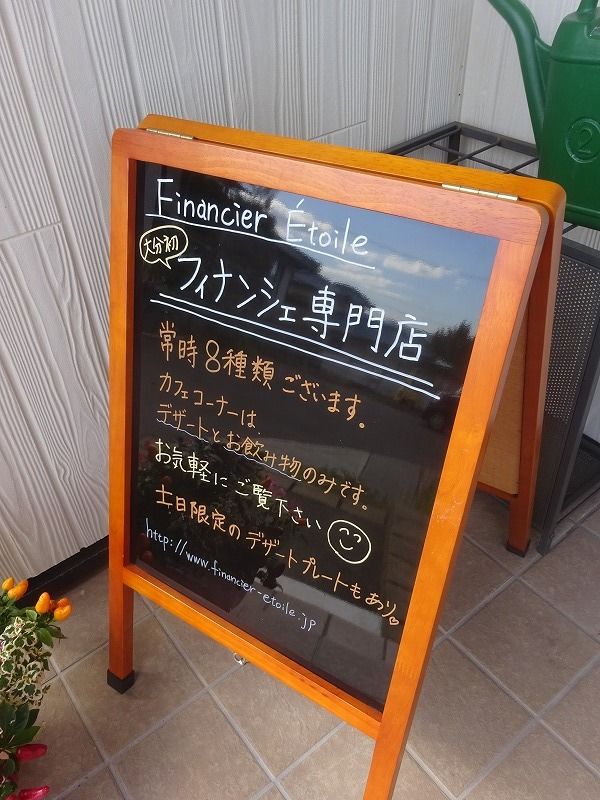 Financier Étoile
大分初
フィナンシェ専門店
常時8種類ございます。
カフェコーナーは
デザートとお飲み物のみです。
お気軽にご覧下さい
土日限定のデザートプレートもあり♡
http://www.financier-etoile.jp
2